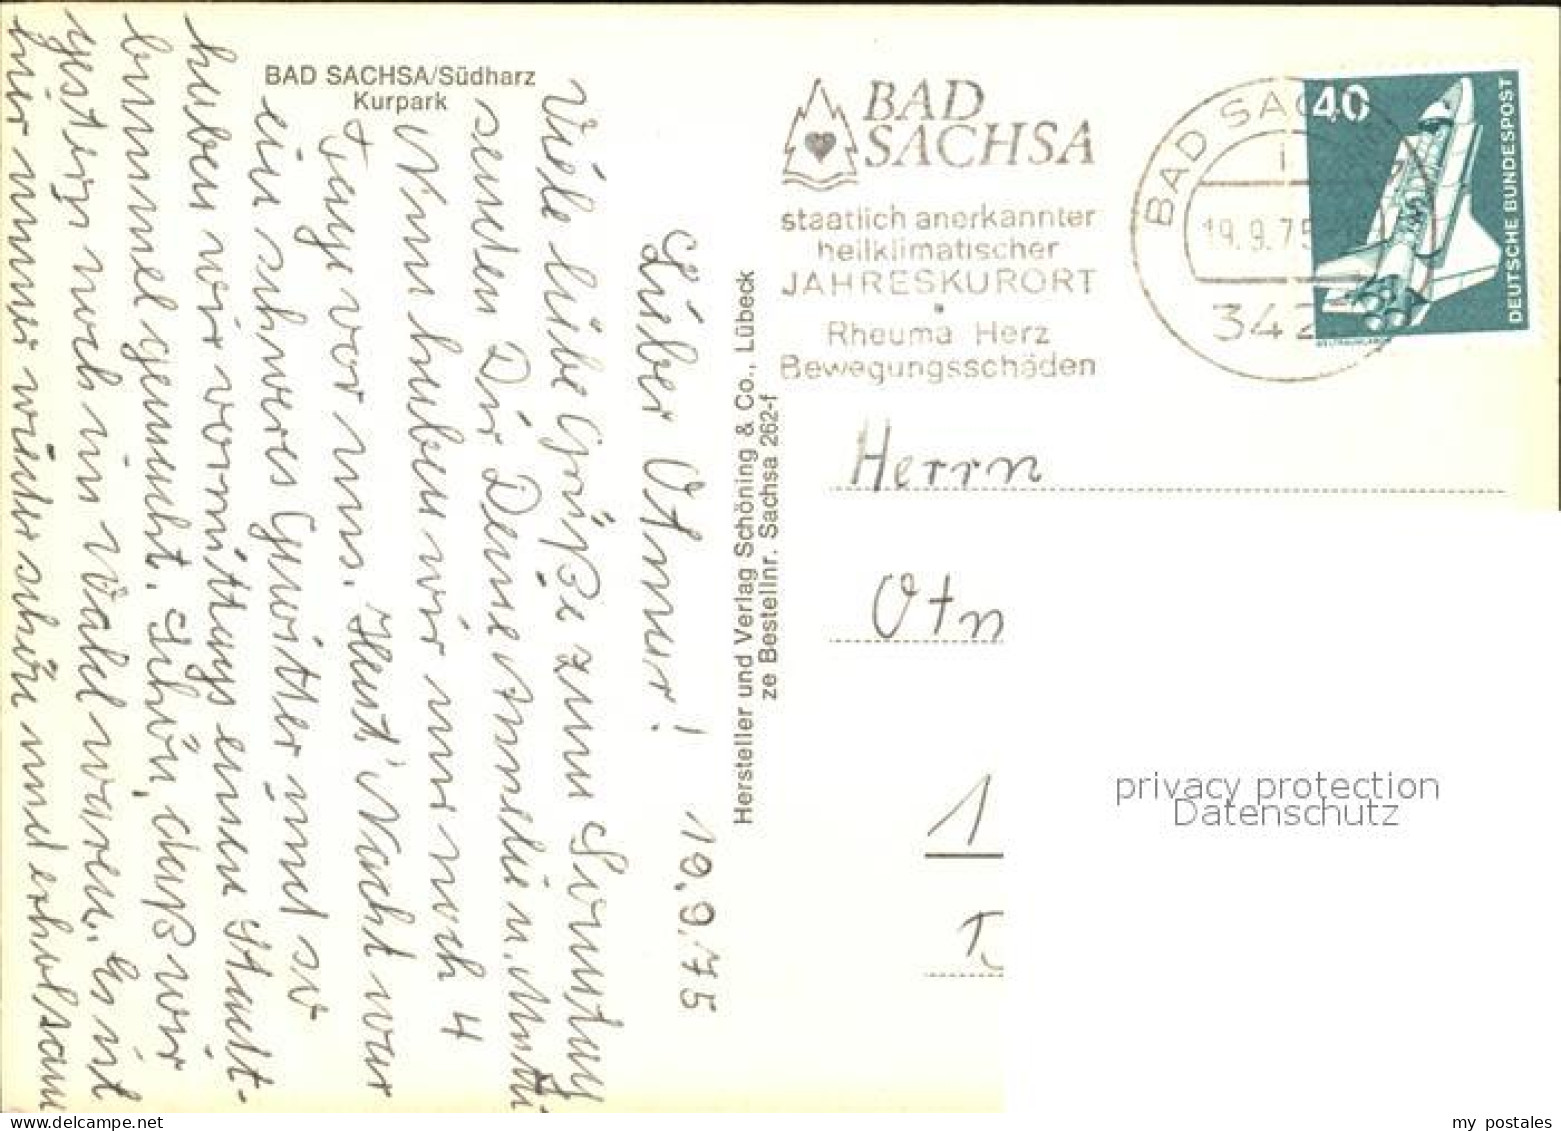 BAD SACHSA/Südharz
Kurpark
19.9.75
Lieber Otmar!
Viele liebe Grüße zum Sonntag
senden Dir Deine Annelie u. Mutti.
Nun haben wir nur noch 4
Tage vor uns. Heut' Nacht war
ein schweres Gewitter und so
haben wir vormittags einen Stadt-
bummel gemacht. Schön, daß wir
gestern noch im Wald waren. Es ist
hier immer wieder schön und erholsam
Hersteller und Verlag Schöning & Co., Lübeck
ze Bestellnr. Sachsa 262-f
BAD
SACHSA
staatlich anerkannter
heilklimatischer
JAHRESKURORT
Rheuma Herz
Bewegungsschäden
BAD SAC
19.9.75
342
40
DEUTSCHE BUNDESPOST
Herrn
Otm
1
privacy protection
Datenschutz
my postales